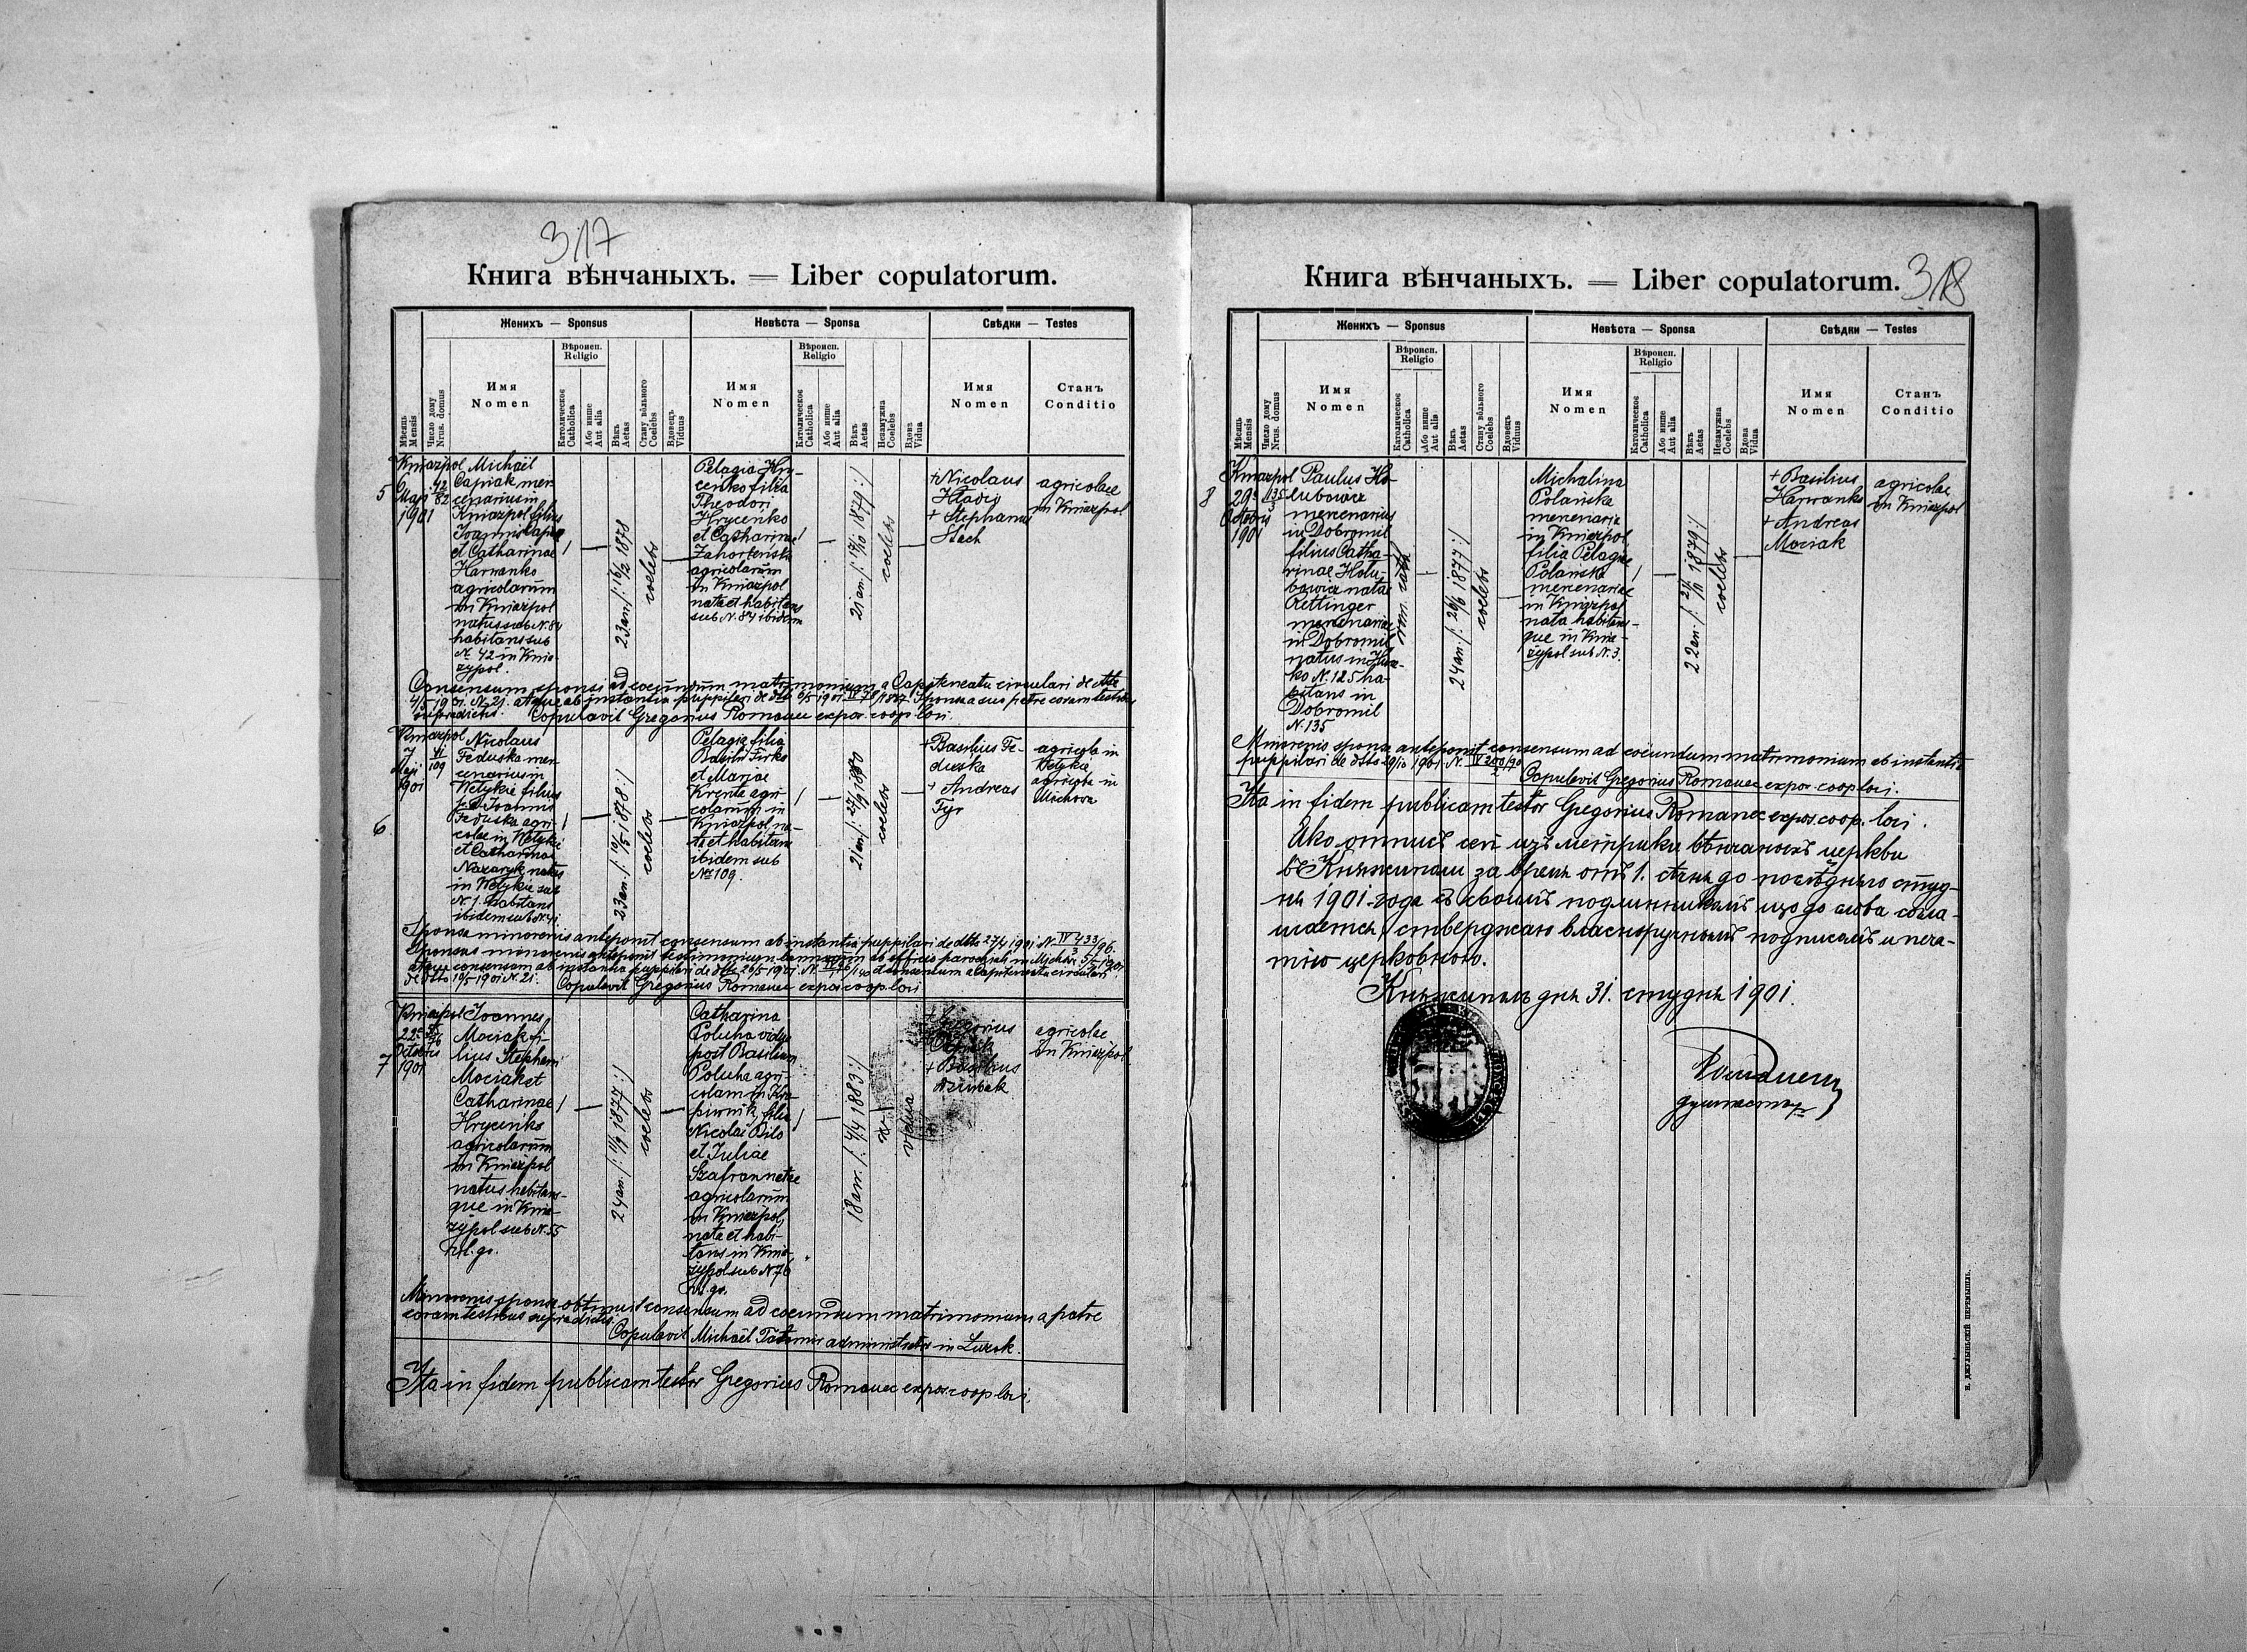 317
Книга вѣнчаныхъ. — Liber copulatorum.
Женихъ — Sponsus
Невѣста — Sponsa
Свѣдки — Testes
Мѣсяць Mensis
Число дому Nrus. domus
Имя
Nomen
Вѣроисп.
Religio
Католическое Catholica
Або инше Aut alia
Вѣкъ Aetas
Стану вôльного Coelebs
Вдовецъ Viduus
Имя
Nomen
Вѣроисп.
Religio
Католическое Catholica
Або инше Aut alia
Вѣкъ Aetas
Незамужна Coelebs
Вдова Vidua
Имя
Nomen
Станъ
Conditio
5
Kniażpol
Maji
1901
42
82
Michaël
Capiak mer
cenarius in
Kniażpol filius
Joannis Capiak
et Catharinae
Harwanko
agricolarum
in Kniażpol
natus sub N. 84
habitans sub
N. 42 in Knia-
żypol.
23 an /: 16/2 1878
coelebs
Pelagia Hry-
cenko filia
Theodori
Hrycenko
et Catharinae
agricolarum
in Kniażpol
nata et habitans
sub N. 84 ibidem
21 an /: 17/10 1879 :/
coelebs
+ Nicolaus
Hladij
+ Stephanus
Stach
agricolae
in Kniażpol
Consensum sponsi ad coeundum matrimonium a Capitaneatu circulari de dtto
4/5 1901. N. 21. atque ab instantia puppilari de dtto 6/5 1901 sponsa a suo patre coram testibus
supradictis. Copulavit Gregorius Romanec expos. coop. loci.
6
Kniażpol
Maji
1901
41
109
Nicolaus
Feduska mer
cenarius in
Wełykie filius
p.d. Joannis
Feduska agri-
colae in Wełykie
et Catharinae
Nazaryk natus
in Wełykie sub
N. 1. habitans
ibidem sub N. 41
23 an. /: 10/5 1878 :/
coelebs
Pelagia filia
Basilii Firko
et Mariae
Krenta agri-
colarum in
Kniażpol na-
ta et habitans
ibidem sub
No 109.
21 an /: 27/9 1880
coelebs
+ Basilius Fe-
duska
+ Andreas
Tyr
agricola in
Wełykie
agricola in
Michowa
Sponsa minorenis anteponit consensum ab instantia puppilari de dtto 27/4 1901 N. IV 433/96.
Sponsus minorenis anteponit testimonium bannorum ab officio parochiali in Michowa 5/5 1901
atque consensum ab instantia puppilari de dtto 26/5 1901. N. consensum a Capitaneatu circulari
de dtto 19/5 1901 N. 21. Copulavit Gregorius Romanec expos. coop. loci
7
Kniażpol
22
Octobris
1901
55
76
Joannes
Mociak fi-
lius Stephani
Mociak et
Catharinae
Hrycenko
agricolarum
in Kniażpol
natus habitans-
que in Knia-
żypol sub N. 55
rl. gr.
24 an /: 11/9 1877 :/
coelebs
Catharina
Połucha vidua
post Basilium
Połucha agri-
colam in Kro-
piwnik, filia
Nicolai Biło
et Juliae
Szafran natae
agricolarum
in Kniażpol,
nata et habi-
tans in Knia-
żypol sub N 76
rl. gr.
18 an. /: 4/4 1883 :/
vidua
+ Basilius
Dziubak
agricolae
in Kniażpol
Minorenis sponsa obtinuit consensum ad coeundum matrimonium a patre
coram testibus supradictis.
Copulavit Michaël Tatomir administrator in Liszok.
Ita in fidem publicam testor Gregorius Romanec expos. coop. loci.
318
Книга вѣнчаныхъ. — Liber copulatorum.
Женихъ — Sponsus
Невѣста — Sponsa
Свѣдки — Testes
Мѣсяць Mensis
Число дому Nrus. domus
Имя
Nomen
Вѣроисп.
Religio
Католическое Catholica
Або инше Aut alia
Вѣкъ Aetas
Стану вôльного Coelebs
Вдовецъ Viduus
Имя
Nomen
Вѣроисп.
Religio
Католическое Catholica
Або инше Aut alia
Вѣкъ Aetas
Незамужна Coelebs
Вдова Vidua
Имя
Nomen
Станъ
Conditio
8
Kniażpol
29
Octobris
1901
135
3
Paulus Ho-
lubowicz
mercenarius
in Dobromil
filius Catha-
rinae Holu-
bowicz natae
Rettinger
mercenariae
in Dobromil
natus in Hucz-
ko N. 125 ha-
bitans in
Dobromil
N. 135
rom. cath.
24 an /: 20/6 1877 :/
coelebs
Michalina
Polańska
mercenaria
in Kniażpol
filia Pelagiae
Polańska
mercenariae
in Kniażpol
nata habitans-
que in Knia-
żypol sub N. 3.
22 an. /: 21/11 1879 :/
coelebs
+ Basilius
Harwanko
+ Andreas
Mociak
agricolae
in Kniażpol
Minorenis sponsa anteponit consensum ad coeundum matrimonium ab instantia
puppilari de dtto 29/10 1901 N.
Copulavit Gregorius Romanec expos. coop. loci.
Ita in fidem publicam testor Gregorius Romanec expos. coop. loci.
Яко отписъ сей изъ метрики вѣнчаныхъ церкви
въ Княжиполи за время отъ 1. стыня до послѣдного студ-
ня 1901. года съ своимъ подлинникомъ изо до слова согла-
шается, стверджаю власноручнымъ подписомъ и печа-
тію церковною.
Княжиполь дня 31. студня 1901.
Романец
душпастыр
Н. ДЖУЛЫНЬСКІЙ ПЕРЕМЫШЛЬ.